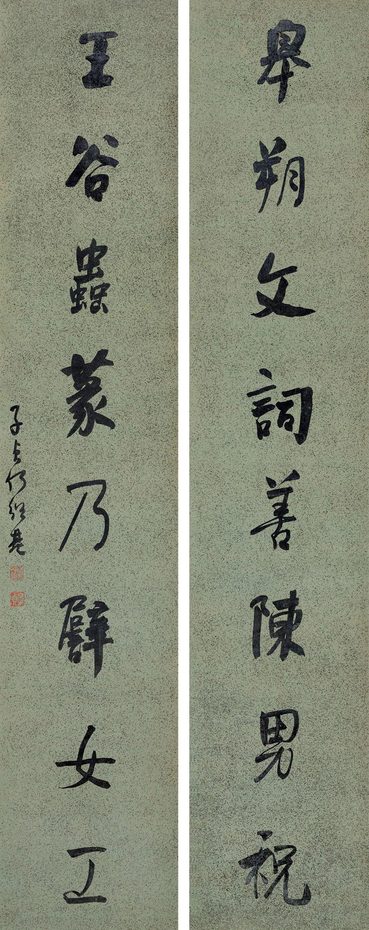 皋朔文詞善陳男祝
王谷蟲篆乃辟女工
子貞何紹基